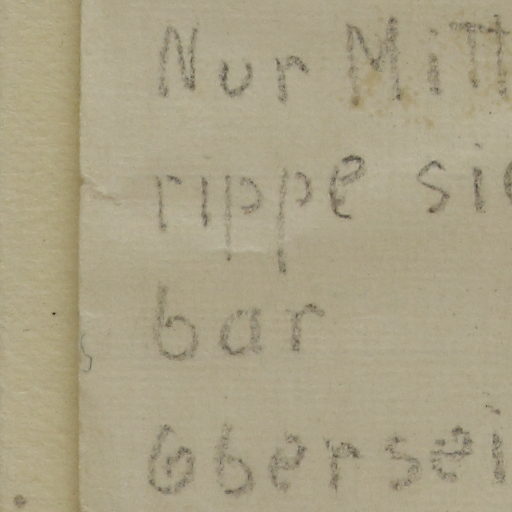 Nur Mitt
rippe sie
bar
Obersei